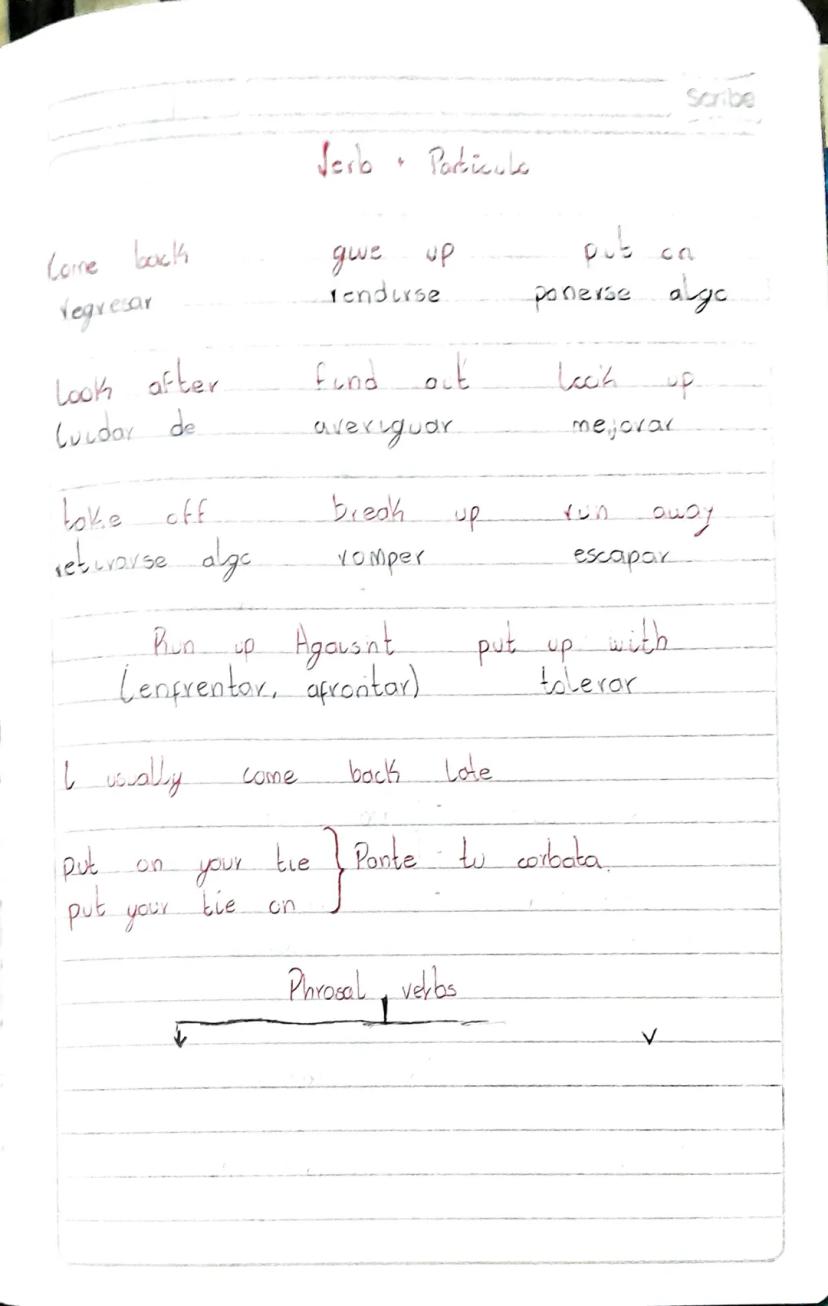 Scribe
Verb + Particula
Come back give up put on
regresar rendirse ponerse algo
look after find out look up
Cuidar de averiguar mejorar
take off break up run away
retirarse algo romper escapar
Run up Agaisnt put up with
(enfrentar, afrontar) tolerar
I usually come back late
put on your tie } Ponte tu corbata.
put your tie on
Phrosal verbs